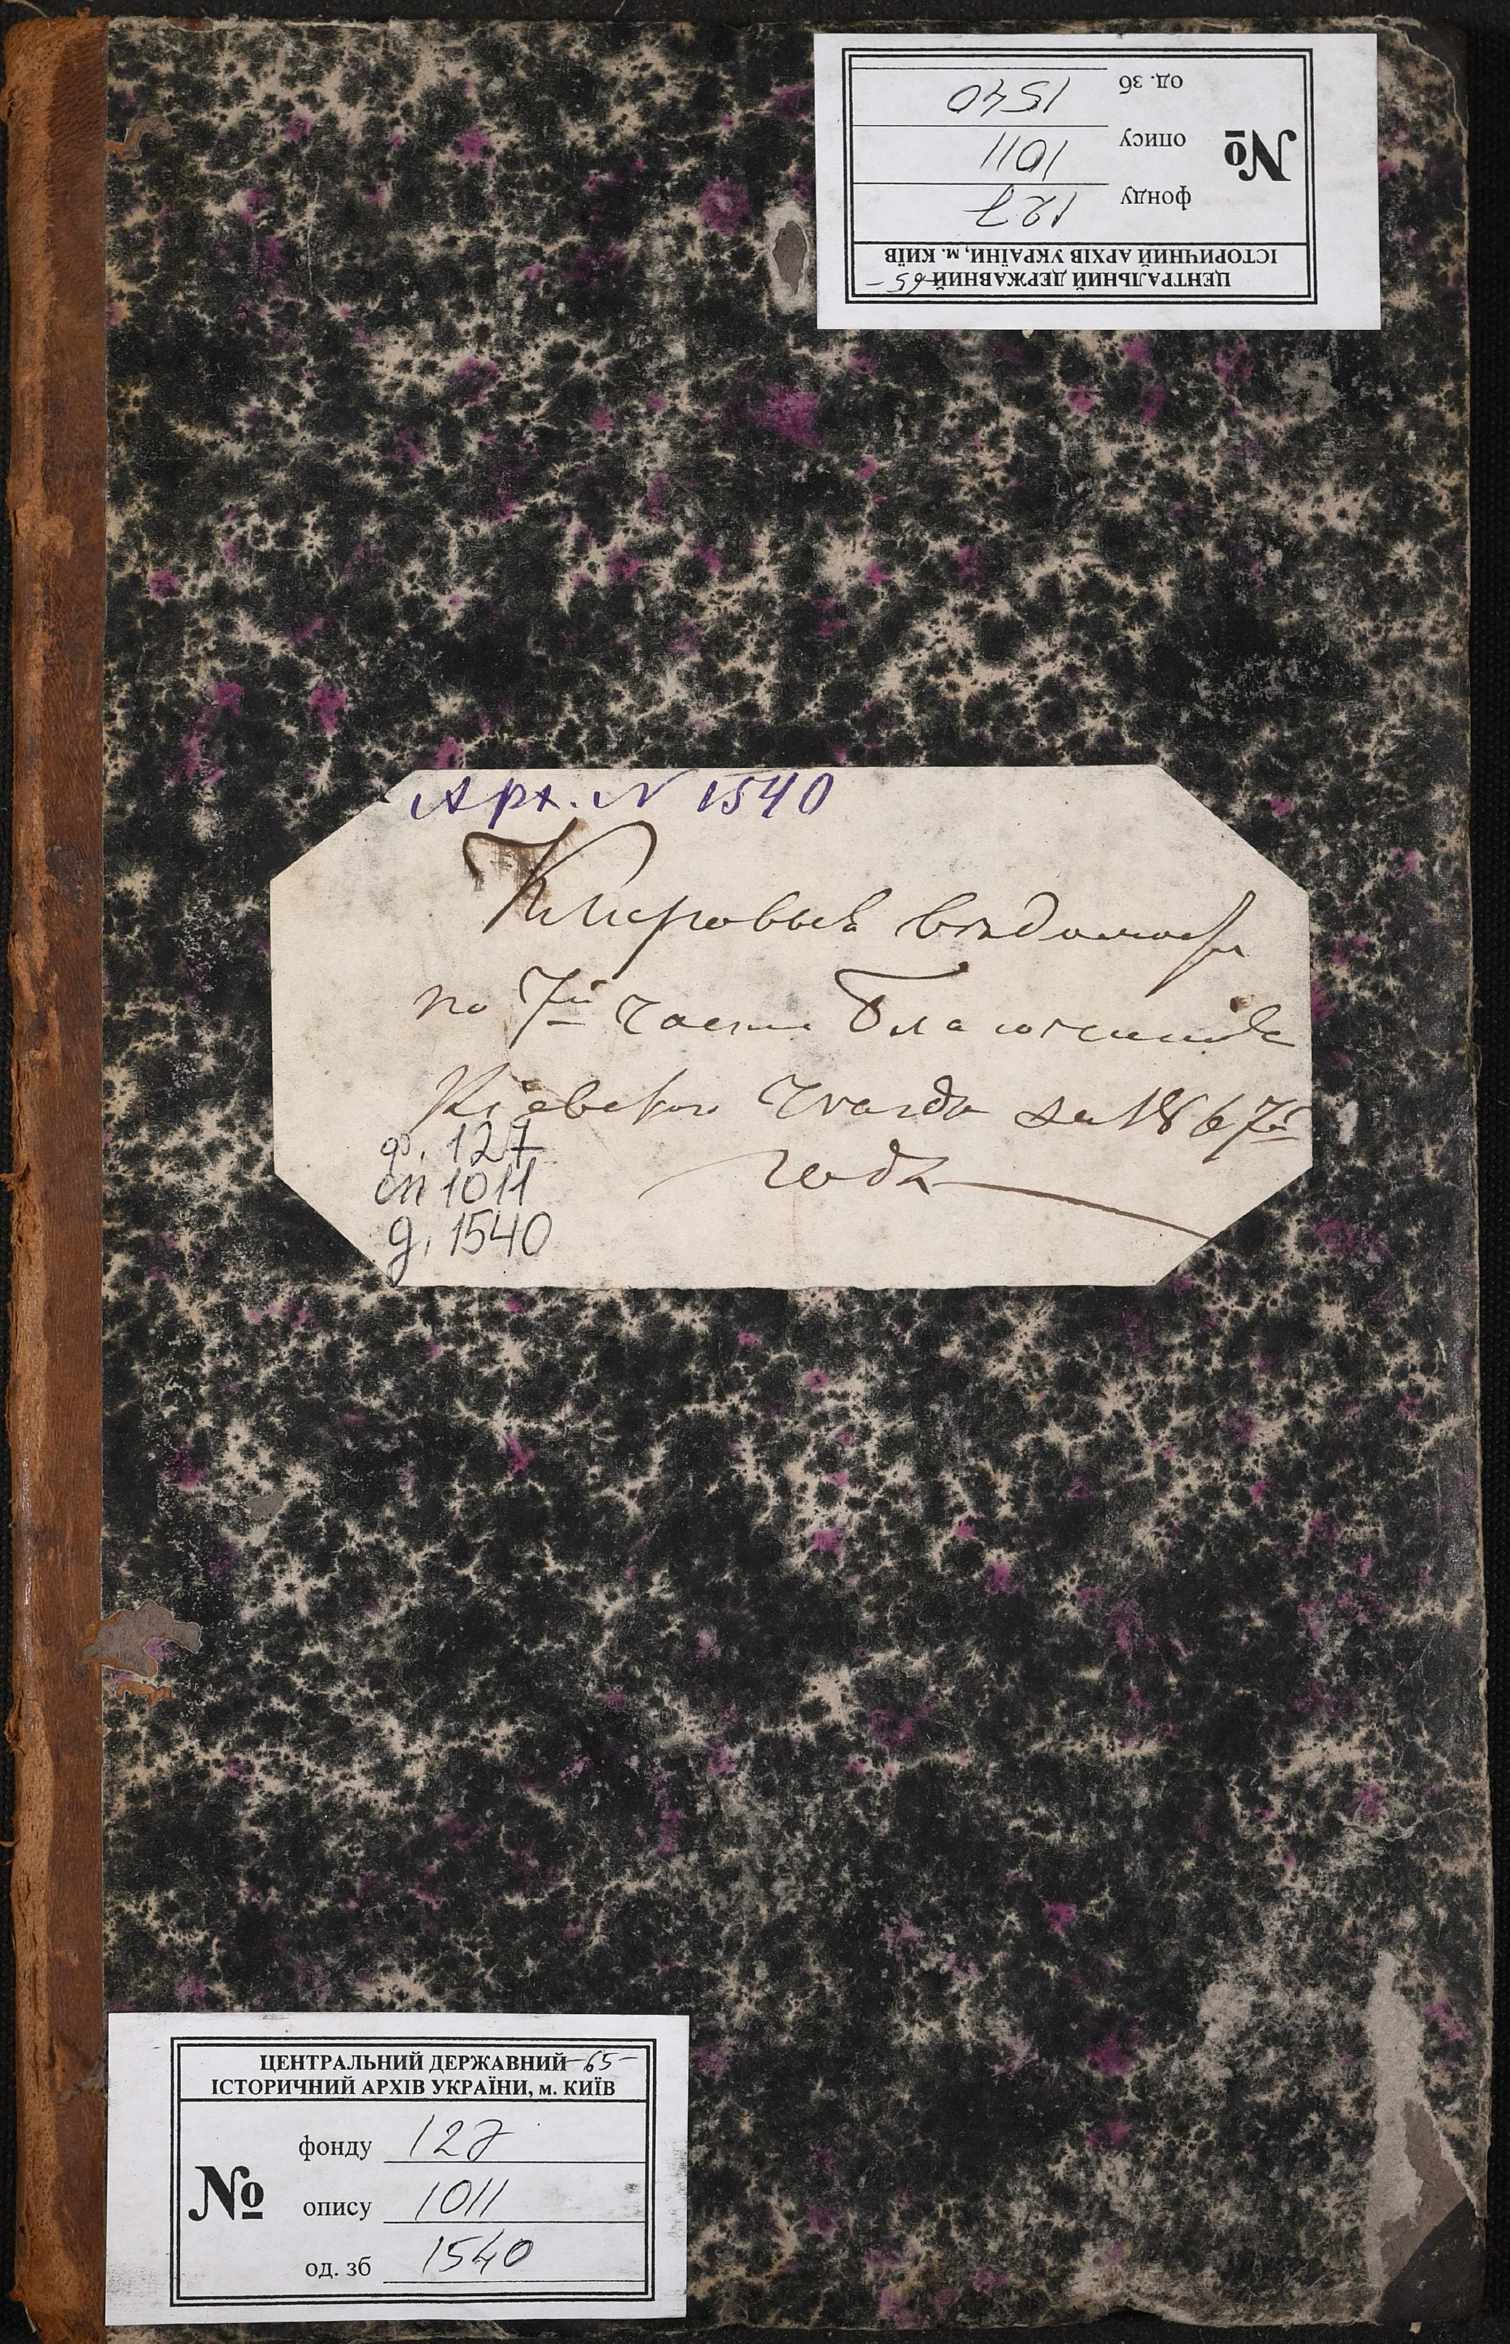 ЦЕНТРАЛЬНИЙ ДЕРЖАВНИЙ -65-
ІСТОРИЧНИЙ АРХІВ УКРАЇНИ, м. КИЇВ
№
фонду 127
опису 1011
од. зб 1540
Арх. N 1540
Клировыя ведомости
по 7й части Благочинія
Кіевского уезда за 1867й
годъ
ф. 127
оп 1011
д. 1540
ЦЕНТРАЛЬНИЙ ДЕРЖАВНИЙ -65-
ІСТОРИЧНИЙ АРХІВ УКРАЇНИ, м. КИЇВ
№
фонду 127
опису 1011
од. зб 1540